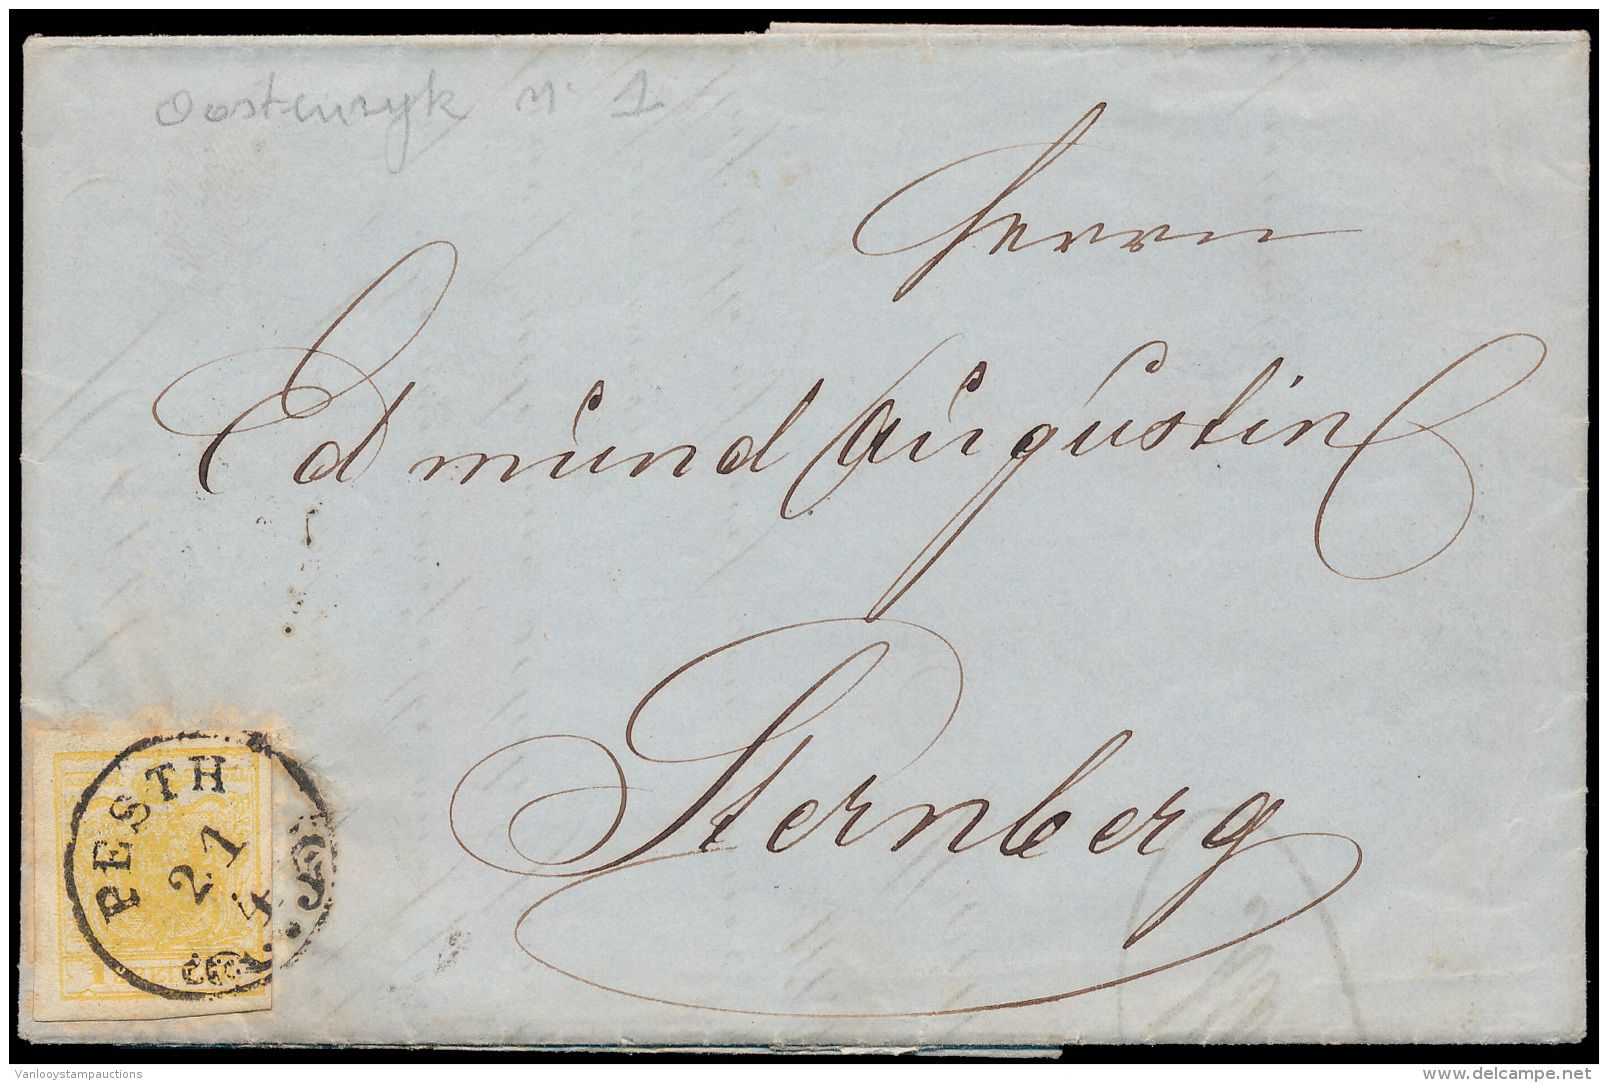 Oostenryk n° 1
Herrn
Edmund Augustin
Sternberg
PESTH
21
4
1
Vanlooystampauctions
© delcampe.net